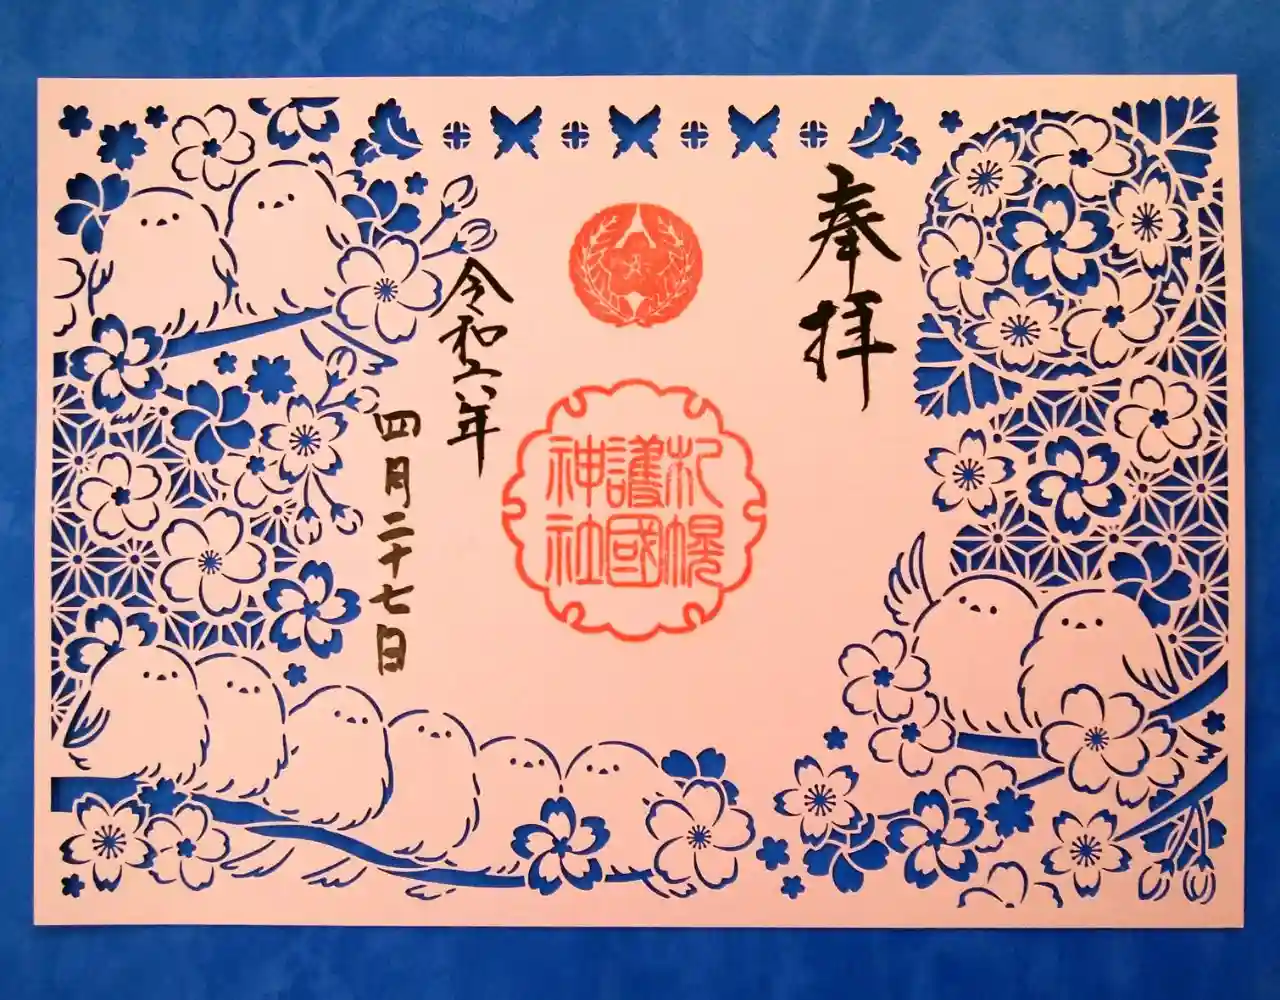 奉拝
札幌
護國
神社
令和六年
四月二十七日